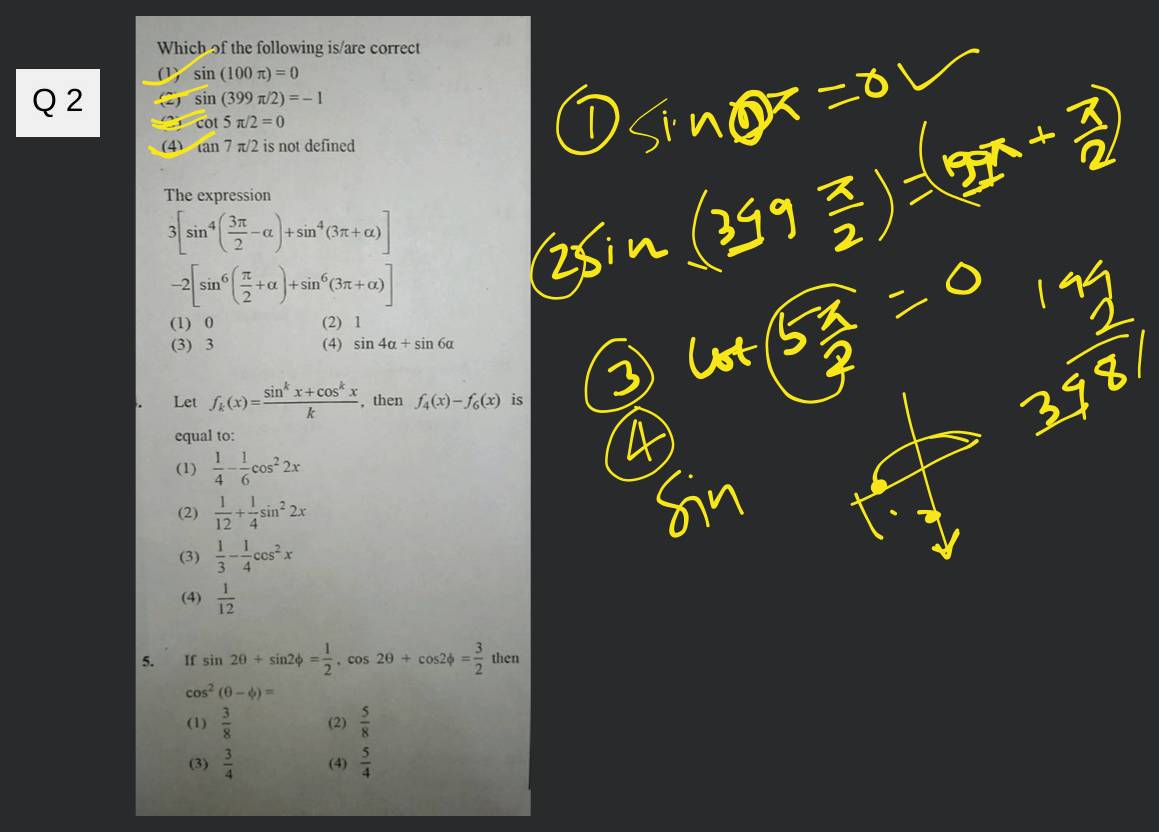 Q 2
Which of the following is/are correct
(1) sin (100 π) = 0
(2) sin (399 π/2) = – 1
(3) cot 5 π/2 = 0
(4) tan 7 π/2 is not defined
The expression
3[sin⁴(3π/2 – α) + sin⁴(3π + α)]
–2[sin⁶(π/2 + α) + sin⁶(3π + α)]
(1) 0 (2) 1
(3) 3 (4) sin 4α + sin 6α
Let fₖ(x) = (sinᵏ x + cosᵏ x)/k, then f₄(x) – f₆(x) is
equal to:
(1) 1/4 – 1/6 cos² 2x
(2) 1/12 + 1/4 sin² 2x
(3) 1/3 – 1/4 cos² x
(4) 1/12
5. If sin 2θ + sin2ϕ = 1/2, cos 2θ + cos2ϕ = 3/2 then
cos² (θ – ϕ) =
(1) 3/8 (2) 5/8
(3) 3/4 (4) 5/4
① sin π = 0 ✓
② sin (399 π/2) = (199π + π/2)
③ cot 5π/2 = 0
199
2
398
④
sin